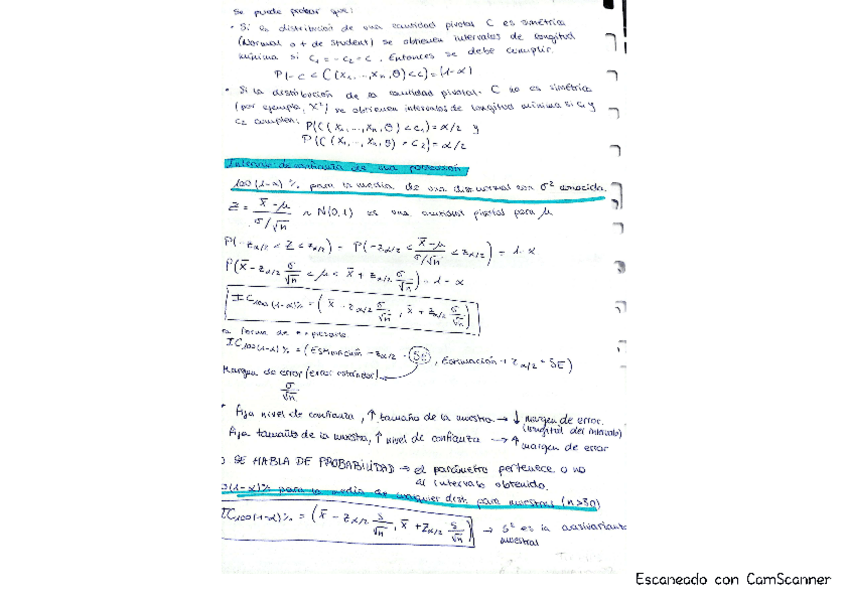 Se puede probar que:
• Si la distribución de una cantidad pivotal C es simétrica
(Normal o t de Student) se obtienen intervalos de longitud
mínima si c₁ = -c₂ = c. Entonces se debe cumplir.
P(-c < C(x₁,...,xₙ,θ) < c) = (1-α)
• Si la distribución de la cantidad pivotal C no es simétrica
(por ejemplo, X²) se obtienen intervalos de longitud mínima si c₁ y
c₂ cumplen: P(C(x₁,...,xₙ,θ) < c₁) = α/2 y
P(C(x₁,...,xₙ,θ) > c₂) = α/2
Intervalo de confianza de una población
100(1-α)% para la media de una dist normal con σ² conocida.
Z = (x̄-μ)/(σ/√n) ~ N(0,1) es una cantidad pivotal para μ
P(-zα/2 < Z < zα/2) = P(-zα/2 < (x̄-μ)/(σ/√n) < zα/2) = 1-α
P(x̄ - zα/2 σ/√n < μ < x̄ + zα/2 σ/√n) = 1-α
IC100(1-α)% = (x̄ - zα/2 σ/√n, x̄ + zα/2 σ/√n)
forma de
IC100(1-α)% = (Estimación - zα/2 · SE, Estimación + zα/2 · SE)
Margen de error (error estándar)
σ/√n
• Fija nivel de confianza, ↑ tamaño de la muestra → ↓ margen de error.
(longitud del intervalo)
Fija tamaño de la muestra, ↑ nivel de confianza → ↑ margen de error
SE HABLA DE PROBABILIDAD → el parámetro pertenece o no
al intervalo obtenido.
(1-α)% para la media de cualquier dist. para muestras (n>30)
IC100(1-α)% = (x̄ - zα/2 s/√n, x̄ + zα/2 s/√n) → s² es la cuasivarianza
muestral
Escaneado con CamScanner